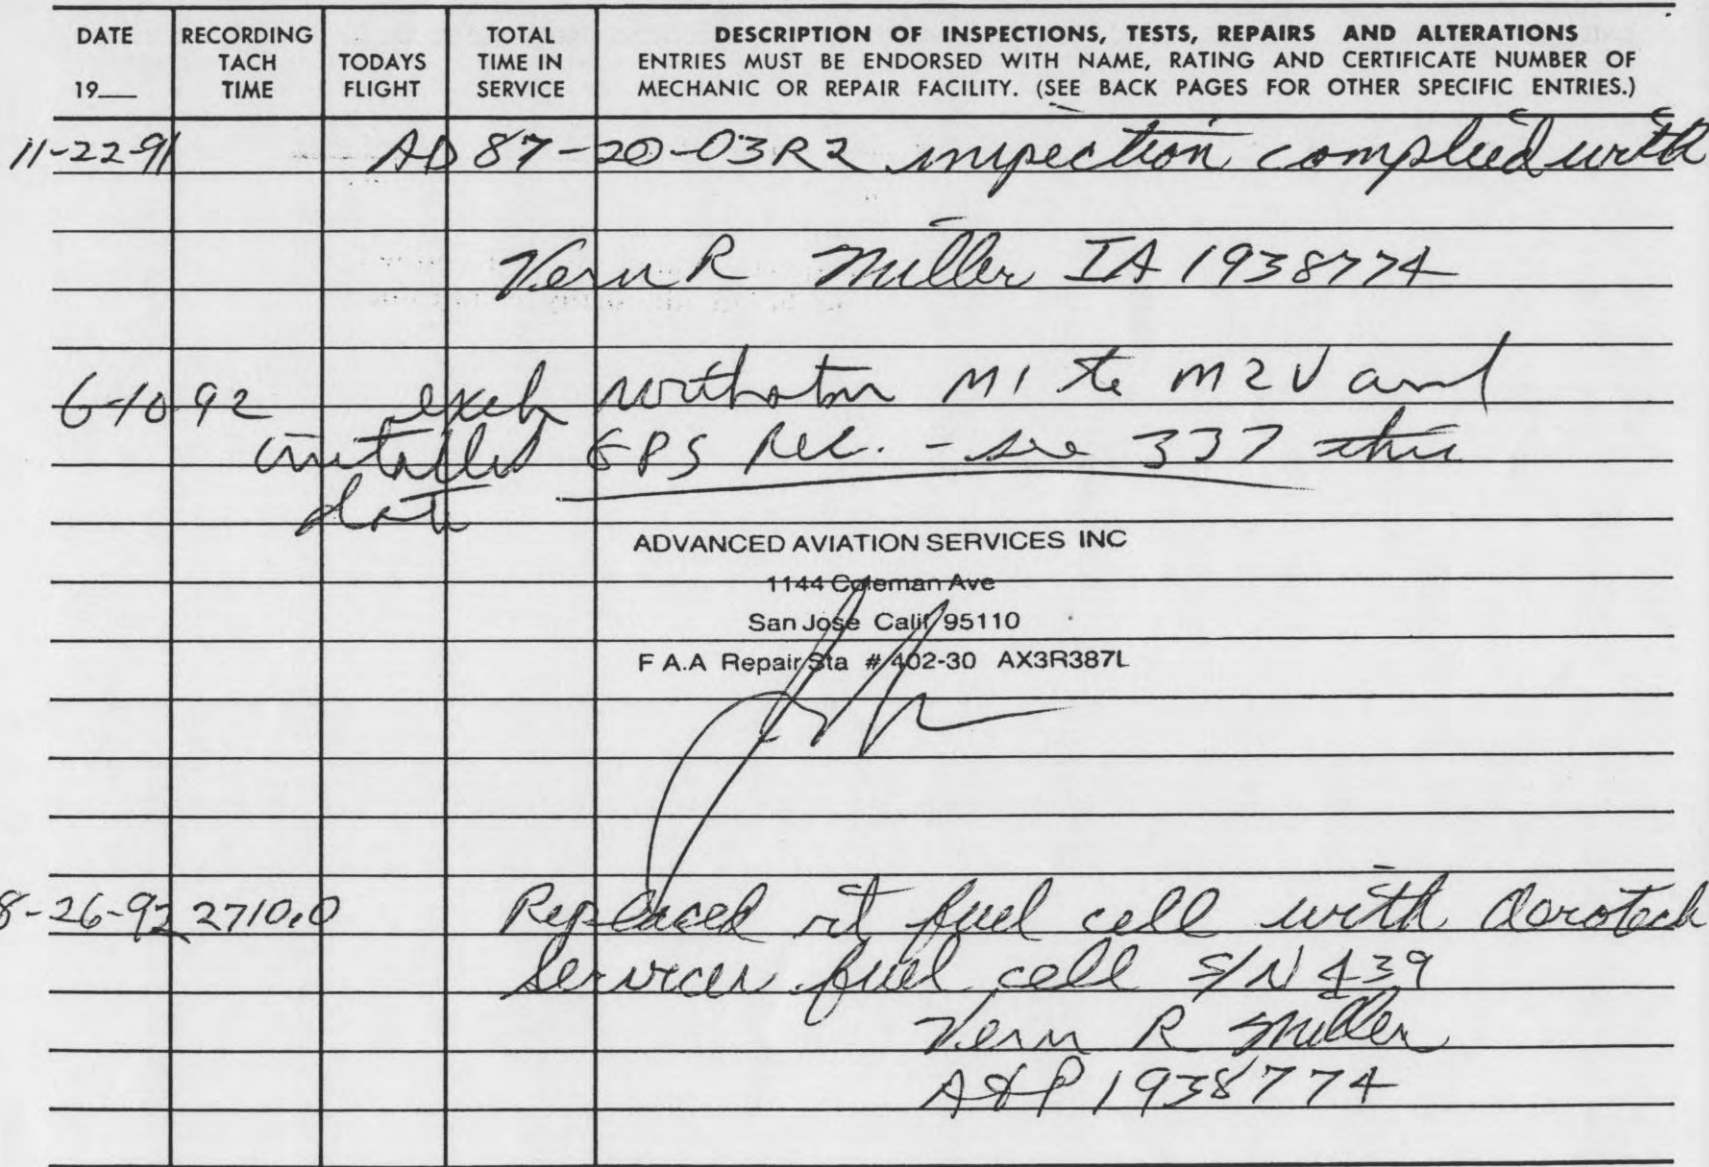 DATE 19__ RECORDING TACH TIME TODAYS FLIGHT TOTAL TIME IN SERVICE DESCRIPTION OF INSPECTIONS, TESTS, REPAIRS AND ALTERATIONS
ENTRIES MUST BE ENDORSED WITH NAME, RATING AND CERTIFICATE NUMBER OF
MECHANIC OR REPAIR FACILITY. (SEE BACK PAGES FOR OTHER SPECIFIC ENTRIES.)
11-22-91 AD 87-20-03R2 inspection complied with
Vern R Miller IA 1938774
6-10 92 exch northstar M1 to M2V and
installed GPS Rec. - see 337 this
date
ADVANCED AVIATION SERVICES INC
1144 Coleman Ave
San Jose Calif 95110
F A.A Repair Sta # 402-30 AX3R387L
8-26-92 2710.0 Replaced rt fuel cell with Aerotech
Services fuel cell S/N 439
Vern R Miller
A&P 1938774